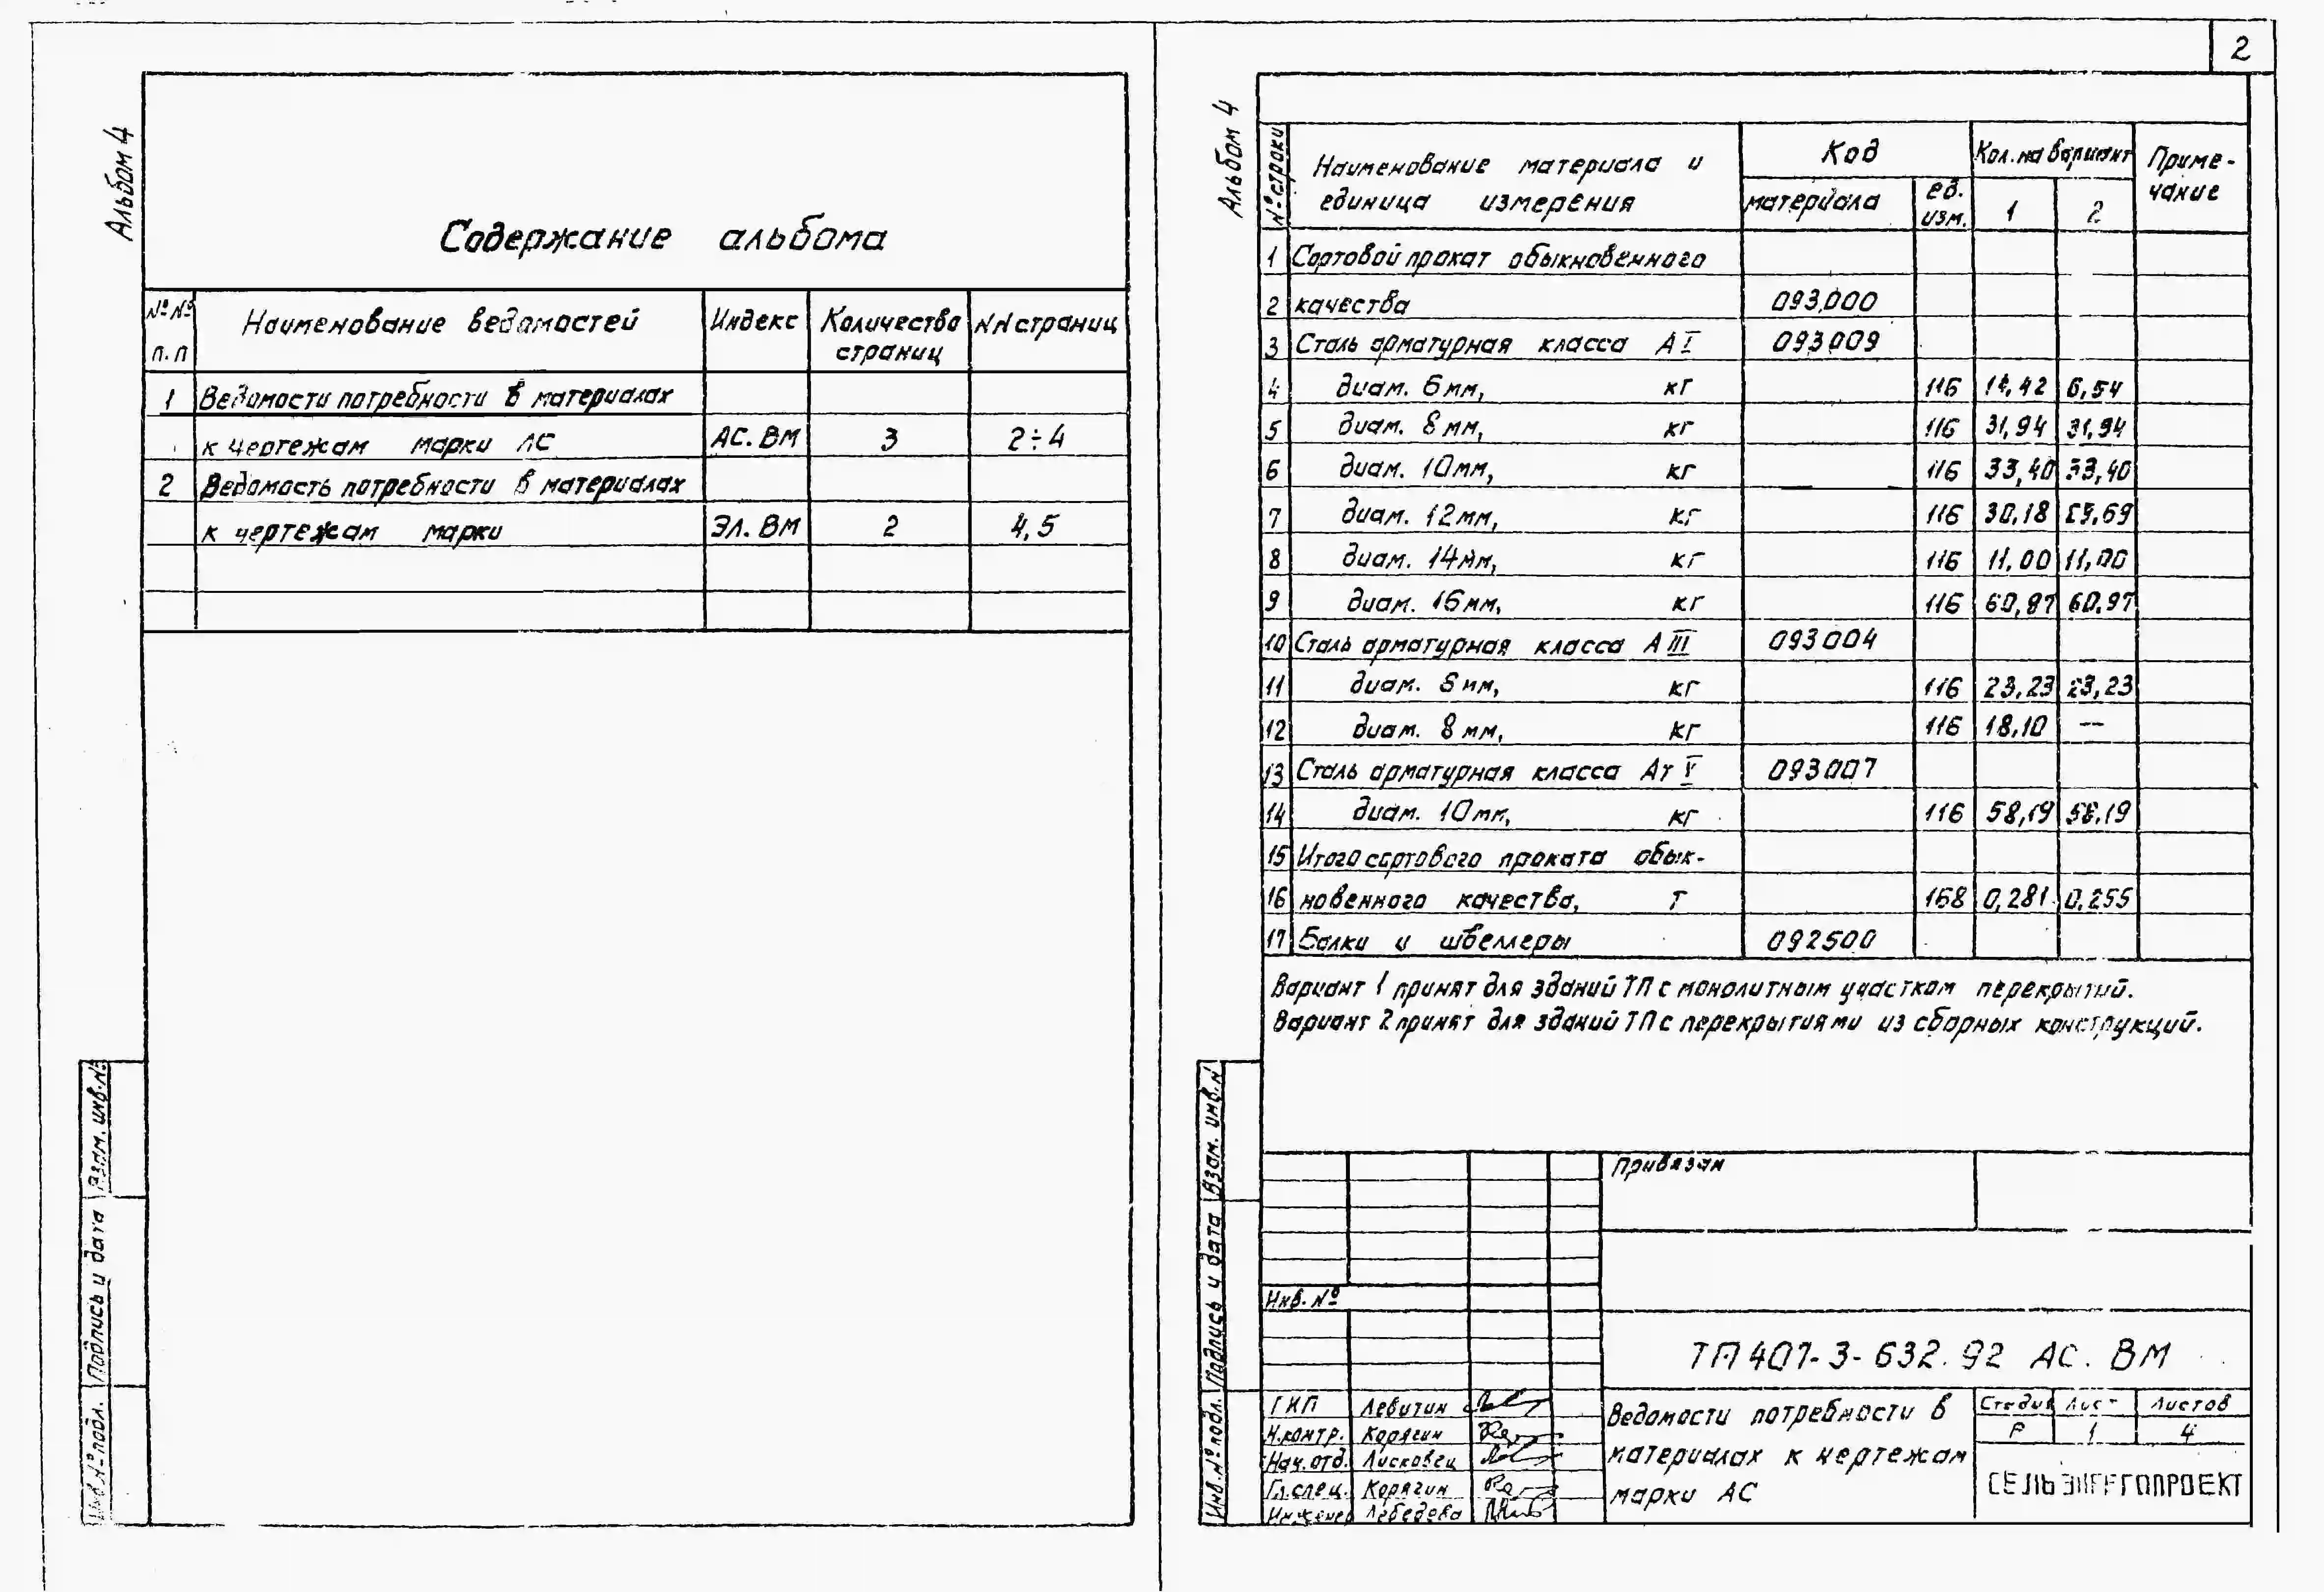 Альбом 4
Содержание альбома
№№ п.п Наименование ведомостей Индекс Количество страниц NN страниц
1 Ведомости потребности в материалах
к чертежам марки АС АС.ВМ 3 2÷4
2 Ведомость потребности в материалах
к чертежам марки ЭЛ.ВМ 2 4,5
Взам. инв.№
Подпись и дата
Инв.№ подл.
2
Альбом 4
№ строки Наименование материала и единица измерения Код Кол. на вариант Приме-
чание
материала ед. изм. 1 2
1 Сортовой прокат обыкновенного
2 качества 093000
3 Сталь арматурная класса А I 093009
4 диам. 6мм, кг 116 14,42 6,54
5 диам. 8мм, кг 116 31,94 31,94
6 диам. 10мм, кг 116 33,40 33,40
7 диам. 12мм, кг 116 30,18
8 диам. 14мм, кг 116 11,00 11,00
9 диам. 16мм, кг 116 60,97
10 Сталь арматурная класса А III 093004
11 диам. мм, кг 116 23,23 23,23
12 диам. 8мм, кг 116 18,10 —
13 Сталь арматурная класса Ат V 093007
14 диам. 10мм, кг 116 58,19 58,19
15 Итого сортового проката обык-
16 новенного качества, т 168 0,281 0,255
17 Балки и швеллеры 092500
Вариант 1 принят для зданий ТП с монолитным участком перекрытий.
Вариант 2 принят для зданий ТП с перекрытиями из сборных конструкций.
Взам. инв.N
Подпись и дата
Инв.№ подл.
Привязан
Инв.№
ТП 407-3-632.92 АС.ВМ
ГИП Левитин
Н.контр. Корягин
Нач.отд. Лисковец
Гл.спец. Корягин
Инженер Лебедева
Ведомости потребности в
материалах к чертежам
марки АС
Стадия Лист Листов
Р 1 4
СЕЛЬЭНЕРГОПРОЕКТ